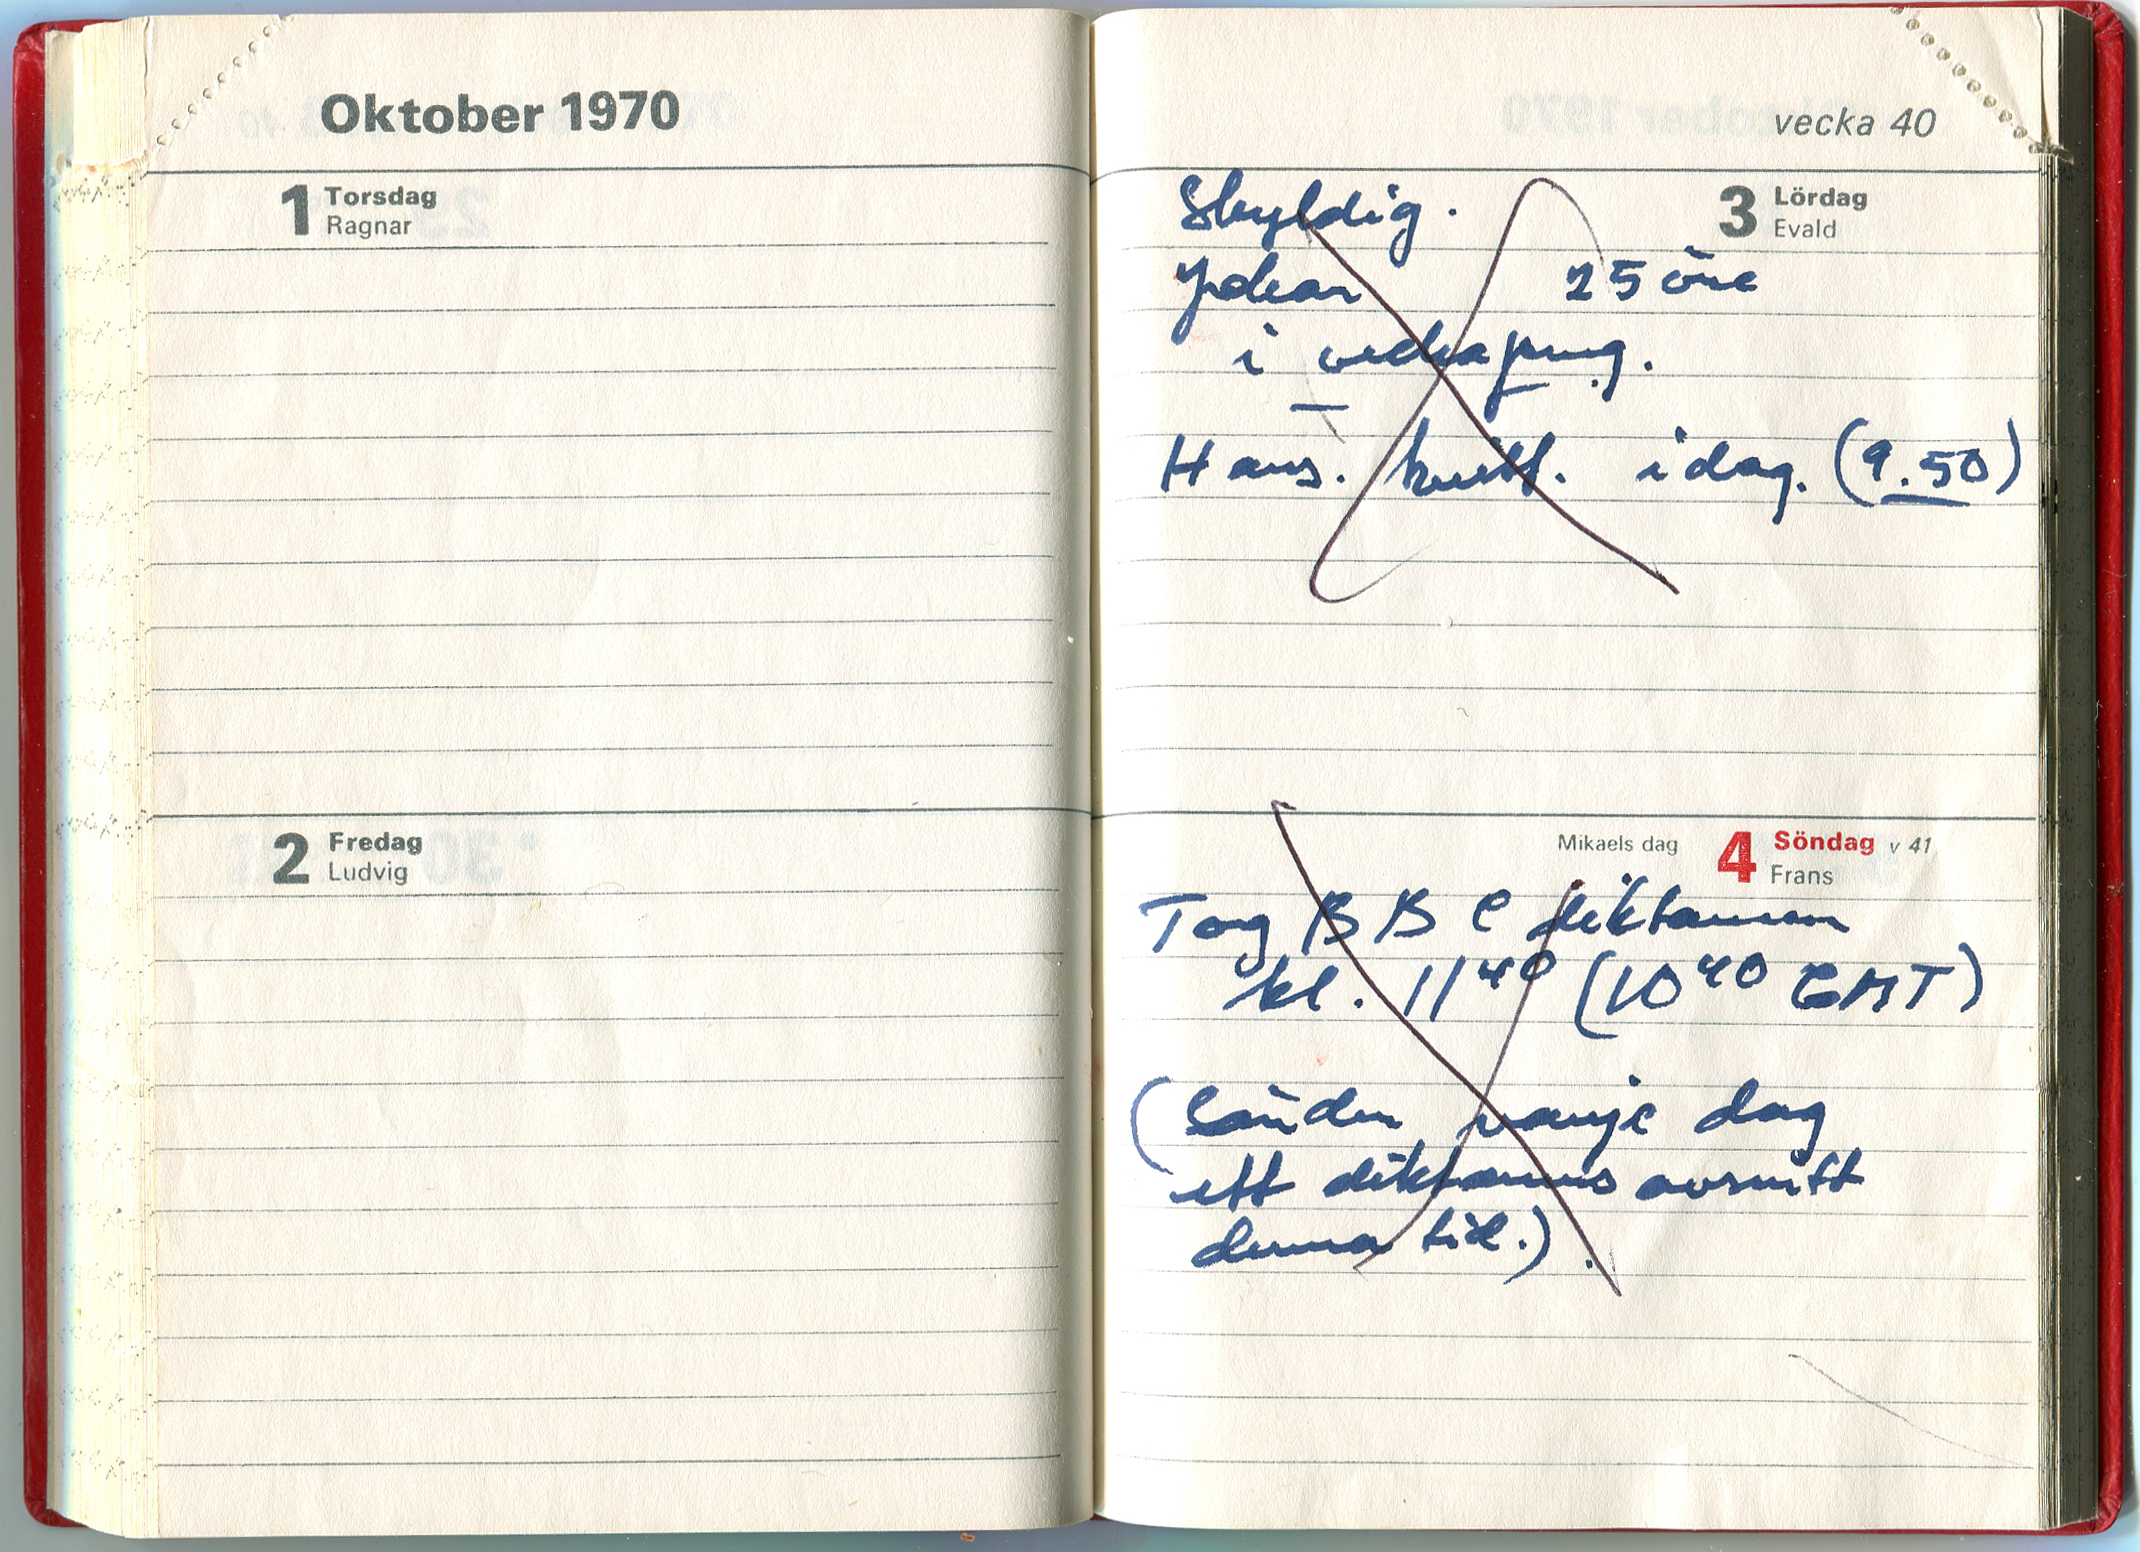 Oktober 1970
1 Torsdag
Ragnar
2 Fredag
Ludvig
vecka 40
3 Lördag
Evald
Skyldig.
25 öre
i veckopeng.
Hans. kvitt. idag. (9.50)
Mikaels dag 4 Söndag v 41
Frans
Tog BBC diktamen
kl. 11⁴⁰ (10⁴⁰ GMT)
(Sänder varje dag
ett diktamens avsnitt
denna tid.).